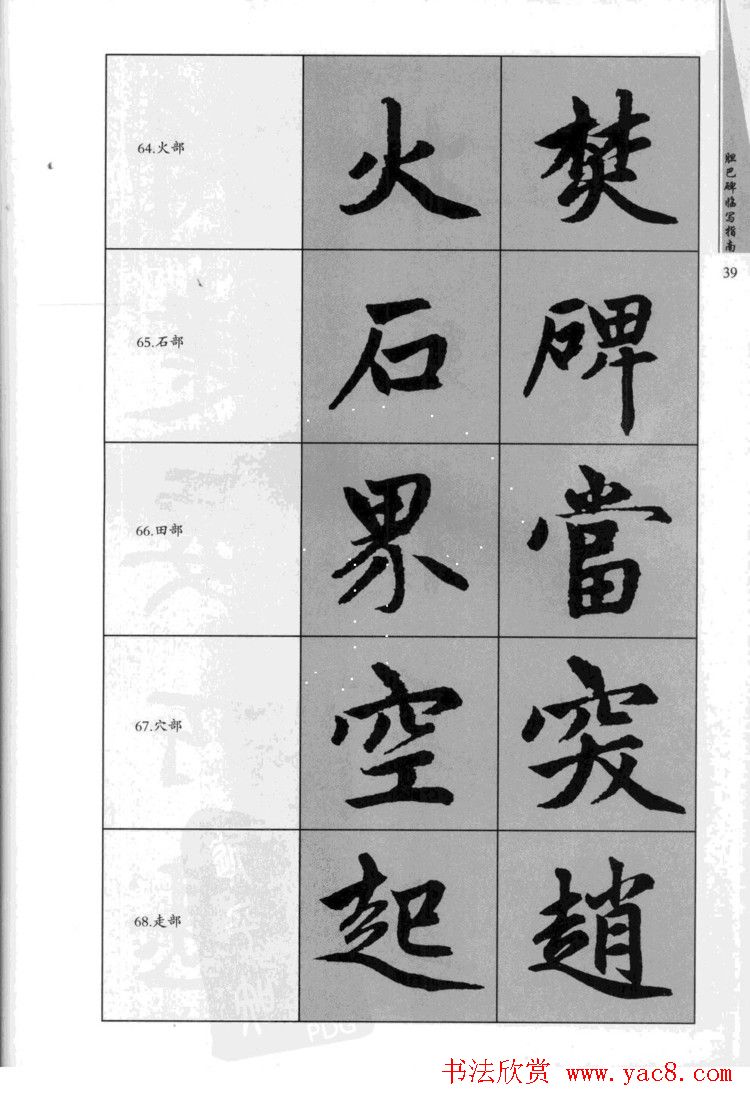 胆巴碑临写指南
39
64.火部 火 焚
65.石部 石 碑
66.田部 界 當
67.穴部 空 突
68.走部 起 趙
PDG
书法欣赏 www.yac8.com